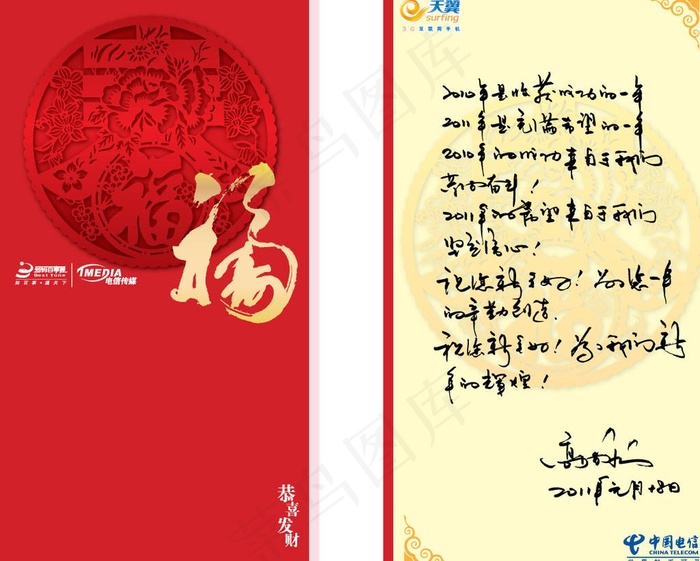 福
福
号码百事通
Best Tone
TMEDIA
电信传媒
恭喜发财
天翼
surfing
3G互联网手机
2010年是收获成功的一年
2011年是充满希望的一年
2010年的成功来自于我们
共同奋斗!
2011年的希望来自于我们
坚定信心!
祝您新年好! 为了您一年
的辛勤创造.
祝您新年好! 为了我们新
年的辉煌!
2011年元月18日
中国电信
CHINA TELECOM
菜鸟图库